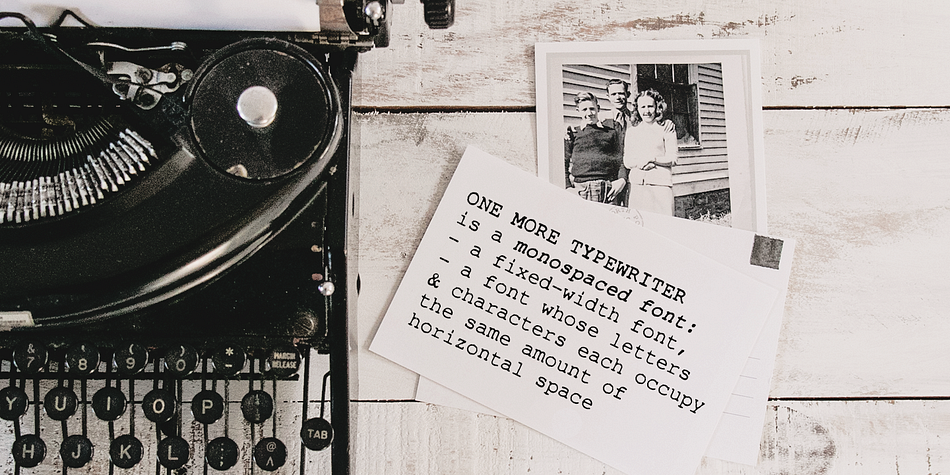 ONE MORE TYPEWRITER
is a monospaced font:
- a fixed-width font,
- a font whose letters
& characters each occupy
the same amount of
horizontal space
& 7 8 9 0 * - MARGIN RELEASE
Y U I O P
H J K L ; @ ^ TAB